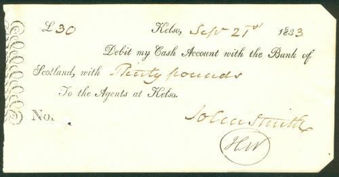 £30 Kelso, Sept 21st 1833
Debit my Cash Account with the Bank of
Scotland, with Thirty pounds
To the Agents at Kelso.
No.
John Smith
HW